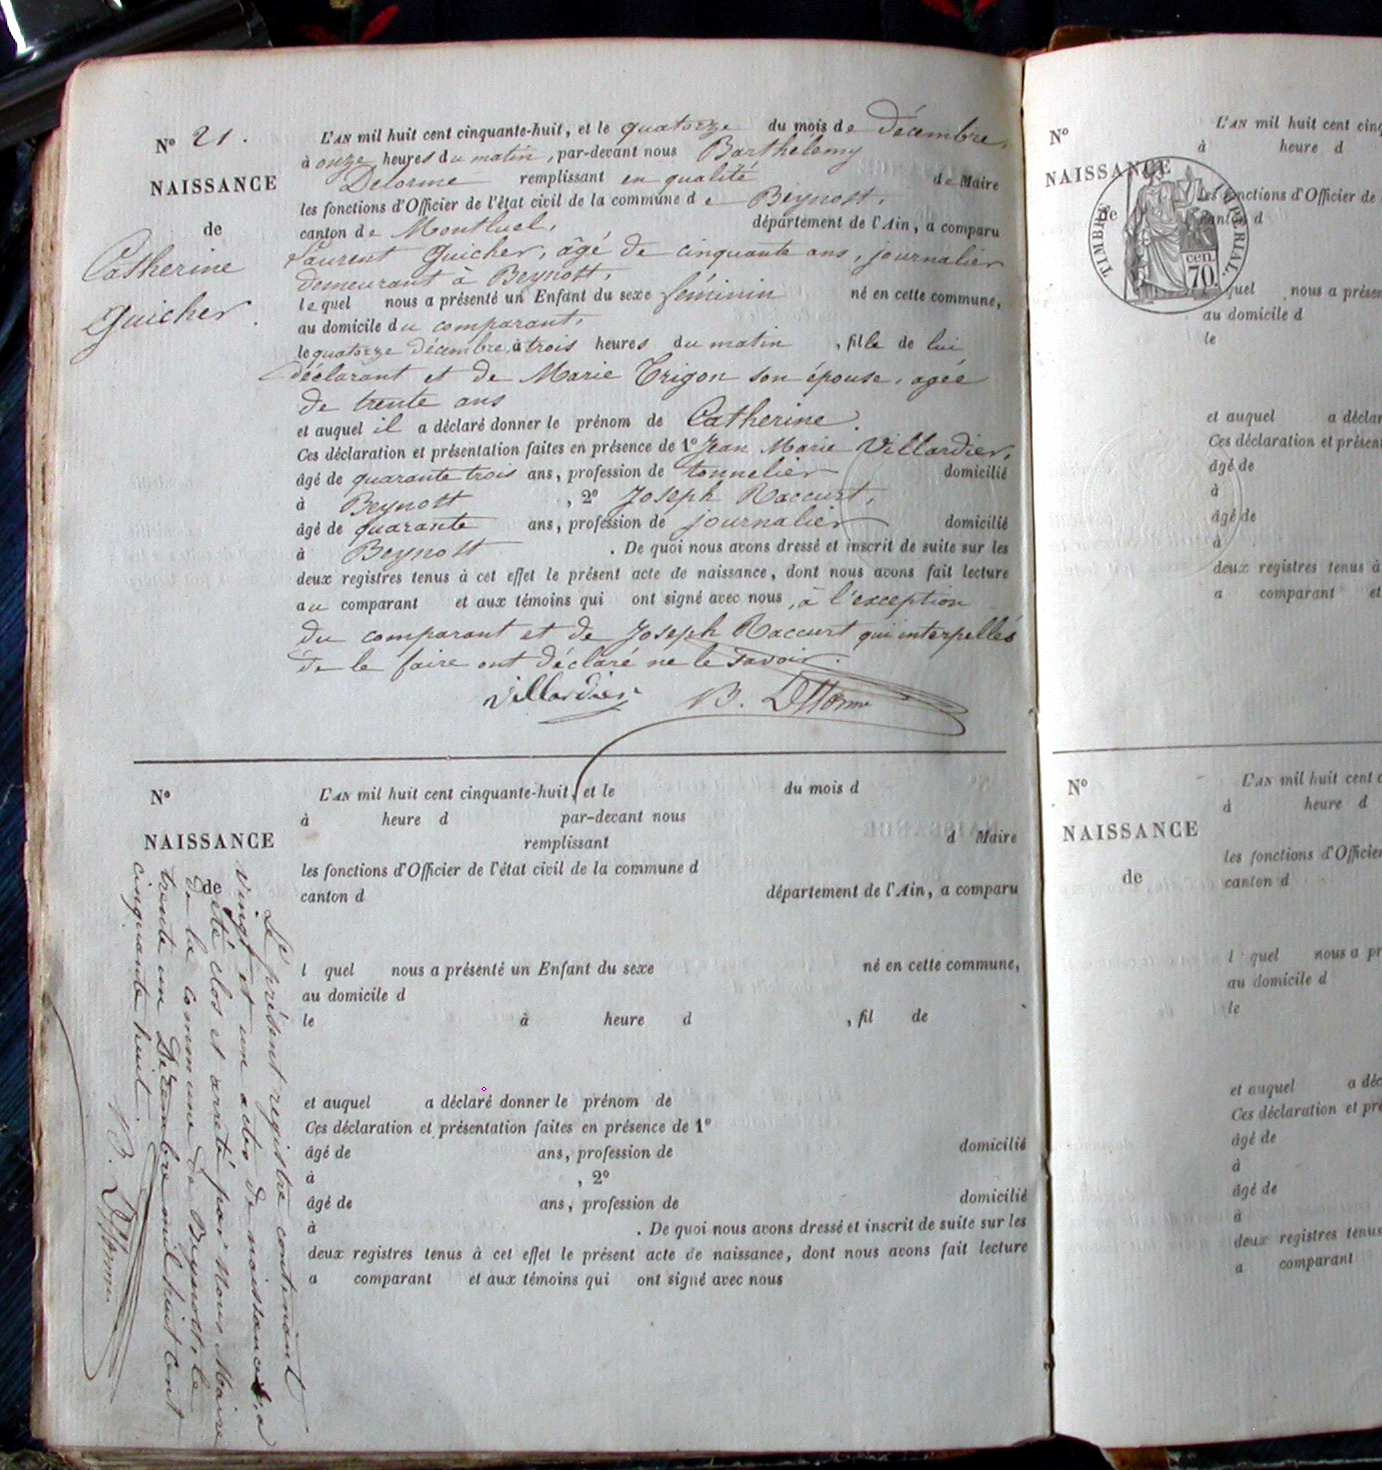 N° 21.
NAISSANCE
de
Catherine
Guicher.
L'AN mil huit cent cinquante-huit, et le quatorze du mois de décembre,
à onze heures du matin, par-devant nous Barthélemy
Delorme remplissant en qualité de Maire
les fonctions d'Officier de l'état civil de la commune de Beynost,
canton de Montluel, département de l'Ain, a comparu
Laurent Guicher, âgé de cinquante ans, journalier
demeurant à Beynost,
lequel nous a présenté un Enfant du sexe féminin né en cette commune,
au domicile du comparant,
le quatorze décembre, à trois heures du matin, fille de lui
déclarant et de Marie Trigon son épouse, agée
de trente ans
et auquel il a déclaré donner le prénom de Catherine.
Ces déclaration et présentation faites en présence de 1° Jean Marie Villardier,
âgé de quarante trois ans, profession de tonnelier domicilié
à Beynost, 2° Joseph Raccurt,
âgé de quarante ans, profession de journalier domicilié
à Beynost. De quoi nous avons dressé et inscrit de suite sur les
deux registres tenus à cet effet le présent acte de naissance, dont nous avons fait lecture
au comparant et aux témoins qui ont signé avec nous, à l'exception
du comparant et de Joseph Raccurt qui interpellés
de le faire ont déclaré ne le savoir.
Villardier B. Delorme
N°
NAISSANCE
de
L'AN mil huit cent cinquante-huit, et le du mois d
à heure d par-devant nous
remplissant d Maire
les fonctions d'Officier de l'état civil de la commune d
canton d département de l'Ain, a comparu
l quel nous a présenté un Enfant du sexe né en cette commune,
au domicile d
le à heure d , fil de
et auquel a déclaré donner le prénom de
Ces déclaration et présentation faites en présence de 1°
âgé de ans, profession de domicilié
à , 2°
âgé de ans, profession de domicilié
à . De quoi nous avons dressé et inscrit de suite sur les
deux registres tenus à cet effet le présent acte de naissance, dont nous avons fait lecture
a comparant et aux témoins qui ont signé avec nous
Le présent registre contenant
vingt et un actes de naissances, a
été clos et arreté par Nous Maire
de la commune de Beynost, le
trente un Décembre mil huit cent
cinquante huit.
B. Delorme
N°
NAISSANCE
de
TIMBRE IMPERIAL.
70 cen.
L'AN mil huit cent cinq
à heure d
les fonctions d'Officier de
canton d
quel nous a présen
au domicile d
le
et auquel a déclar
Ces déclaration et présent
âgé de
à
âgé de
à
deux registres tenus à
a comparant et
N°
NAISSANCE
de
L'AN mil huit cent c
à heure d
les fonctions d'Officier
canton d
l quel nous a pr
au domicile d
le
et auquel a déc
Ces déclaration et pré
âgé de
à
âgé de
à
deux registres tenus
a comparant